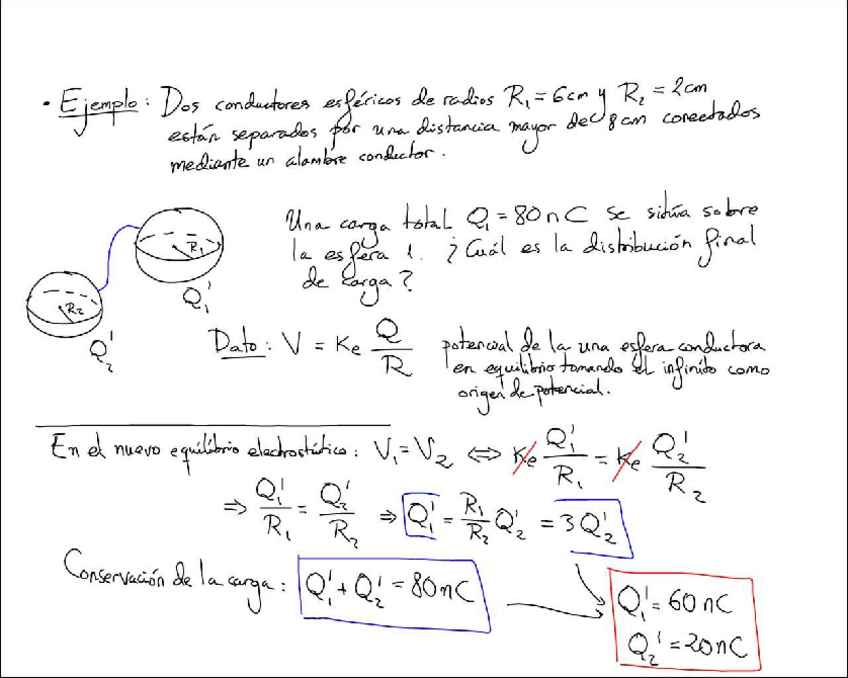 • Ejemplo: Dos conductores esféricos de radios R₁ = 6cm y R₂ = 2cm
están separados por una distancia mayor de 8 cm conectados
mediante un alambre conductor.
Una carga total Q₁ = 80 nC se sitúa sobre
la esfera 1. ¿Cuál es la distribución final
de carga?
R₁
Q₁'
R₂
Q₂'
Dato: V = Ke Q/R potencial de la una esfera conductora
en equilibrio tomando el infinito como
origen de potencial.
En el nuevo equilibrio electrostático: V₁ = V₂ ⇔ Ke Q₁'/R₁ = Ke Q₂'/R₂
⇒ Q₁'/R₁ = Q₂'/R₂ ⇒ Q₁' = R₁/R₂ Q₂' = 3Q₂'
Conservación de la carga: Q₁' + Q₂' = 80nC
Q₁' = 60 nC
Q₂' = 20nC